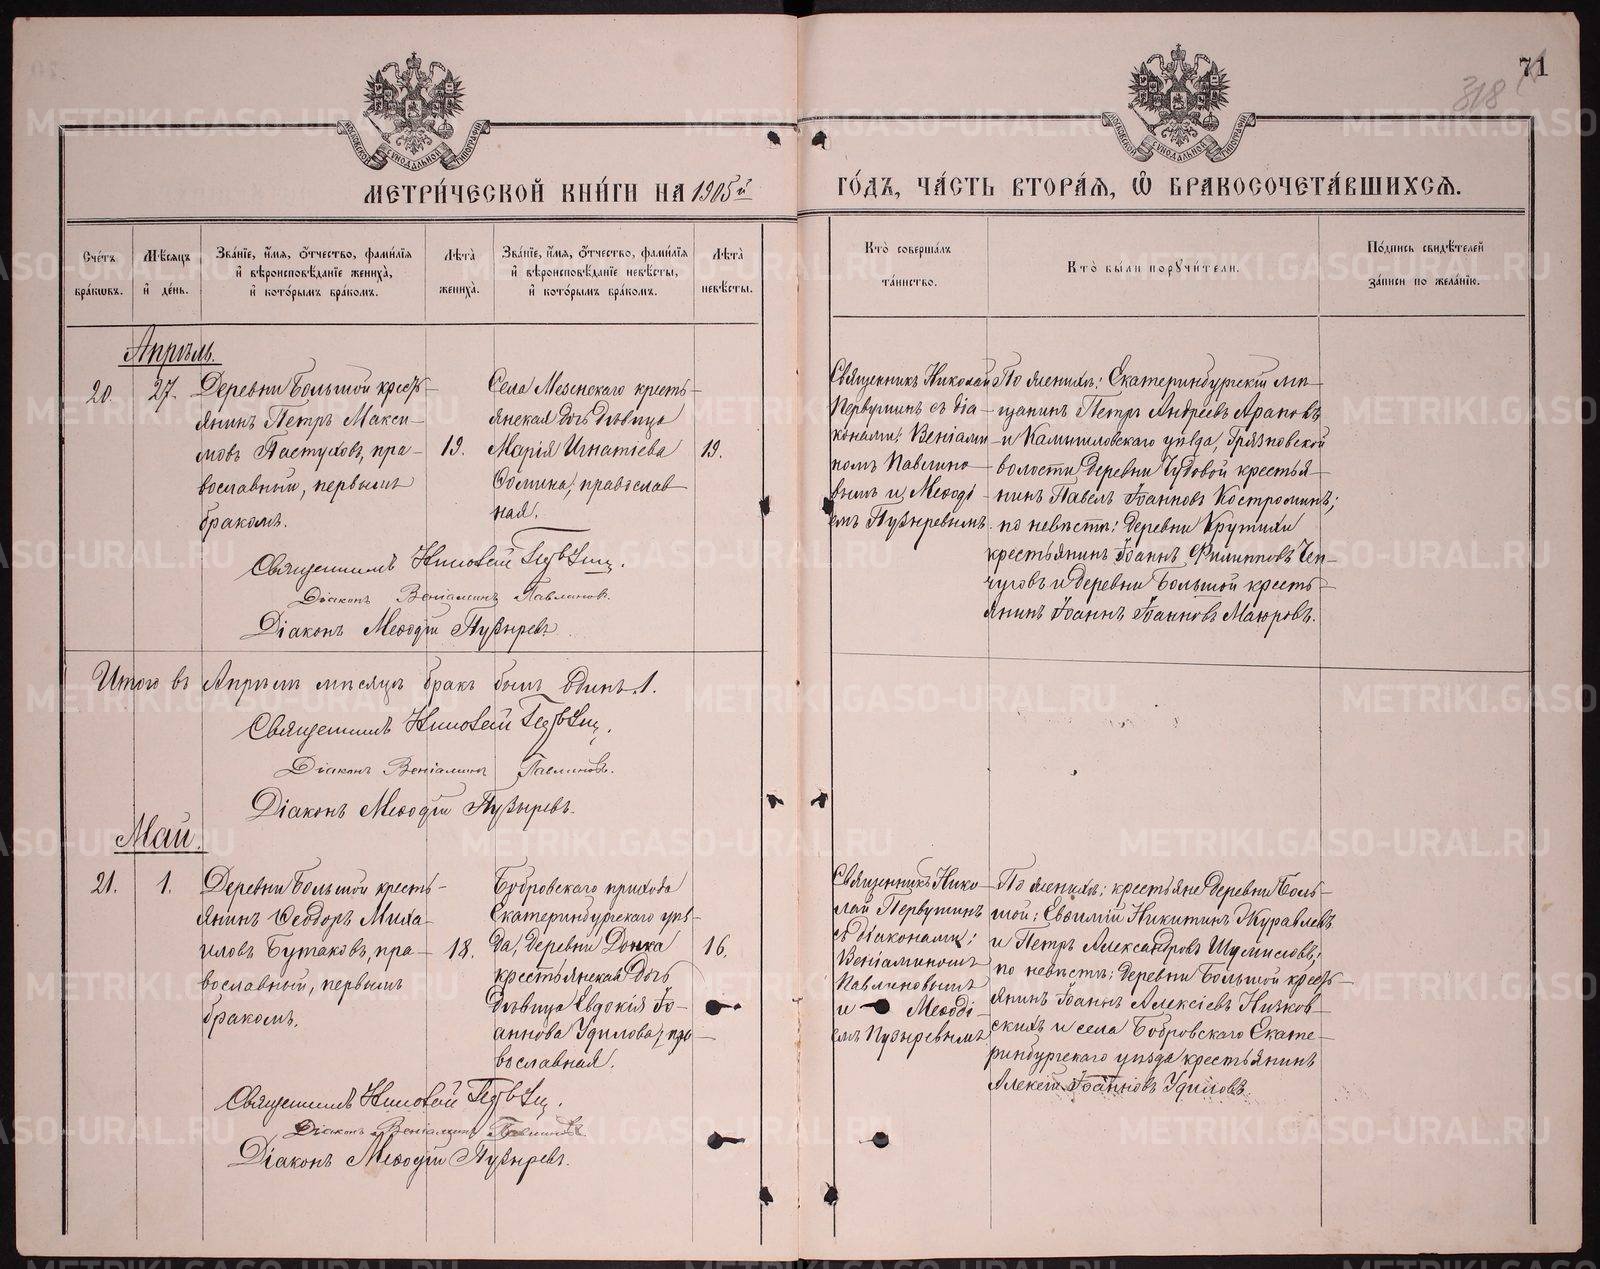 71
318
МОСКОВСКОЙ СѴНОДАЛЬНОЙ ТИПОГРАФІИ
МОСКОВСКОЙ СѴНОДАЛЬНОЙ ТИПОГРАФІИ
МЕТРИ́ЧЕСКОЙ КНИ́ГИ НА 1905й
ГО́ДЪ, ЧА́СТЬ ВТОРА́Ѧ, Ѽ БРАКОСОЧЕТА́ВШИХСѦ.
Сче́тъ
бра́кѡвъ.
Мѣ́сѧцъ
и҆ де́нь.
Зва́нїе, и҆́мѧ, ѻ҆́тчество, фами́лїѧ
и҆ вѣроисповѣ́данїе жениха̀,
и҆ кото́рымъ бра́комъ.
Лѣ́та̀
жениха̀.
Зва́нїе, и҆́мѧ, ѻ҆́тчество, фами́лїѧ
и҆ вѣроисповѣ́данїе невѣ́сты,
и҆ кото́рымъ бра́комъ.
Лѣ́та̀
невѣ́сты.
Кто̀ соверша́лъ
та́инство.
Кто̀ бы́ли порꙋчи́тели.
По́дпись свидѣ́телей
за́писи по жела́нїю.
Апрѣль.
20.
27.
Деревни Большой кресть-
янинъ Петръ Макси-
мовъ Пастуховъ, пра-
вославный, первымъ
бракомъ.
19.
Села Мезенскаго кресть-
янская дочь девица
Марія Игнатіева
Ѳомина, православ
ная.
19.
Священникъ Николай
Первушинъ съ діа-
конами: Веніами-
номъ Павлино-
вымъ и Меѳоді-
емъ Пузыревымъ.
По женихѣ: Екатеринбургскій мѣ-
щанинъ Петръ Андреевъ Араповъ
и Камышловскаго уѣзда, Грязновской
волости деревни Чудовой крестья-
нинъ Павелъ Іоанновъ Костроминъ;
по невѣстѣ: деревни Крутихи
крестьянинъ Іоаннъ Филипповъ Чеп-
чуговъ и деревни Большой кресть-
янинъ Іоаннъ Іоанновъ Маюровъ.
Священникъ Николай Первушинъ.
Діаконъ Веніаминъ Павлиновъ.
Діаконъ Меѳодій Пузыревъ.
Итого въ Апрѣлѣ мѣсяцѣ бракъ былъ одинъ. 1.
Священникъ Николай Первушинъ.
Діаконъ Веніаминъ Павлиновъ.
Діаконъ Меѳодій Пузыревъ.
Май.
21.
1.
Деревни Большой кресть-
янинъ Ѳеодоръ Миха-
иловъ Бутаковъ, пра-
вославный, первымъ
бракомъ.
18.
Бобровскаго прихода
Екатеринбургскаго уѣз-
да, деревни Донка
крестьянская дочь
дѣвица Евдокія Іо-
аннова Удилова, пра
вославная.
16.
Священникъ Нико-
лай Первушинъ
съ діаконами:
Веніаминомъ
Павлиновымъ
и Меѳоді-
емъ Пузыревымъ
По женихѣ: крестьяне деревни Боль-
шой: Евѳимій Никитинъ Журавлевъ
и Петръ Александровъ Шумиловъ;
по невѣстѣ: деревни Большой кресть-
янинъ Іоаннъ Алексіевъ Низков-
скихъ и села Бобровскаго Екате-
ринбургскаго уѣзда крестьянинъ
Алексій Іоанновъ Удиловъ.
Священникъ Николай Первушинъ.
Діаконъ Веніаминъ Павлиновъ.
Діаконъ Меѳодій Пузыревъ.
METRIKI.GASO-URAL.RU